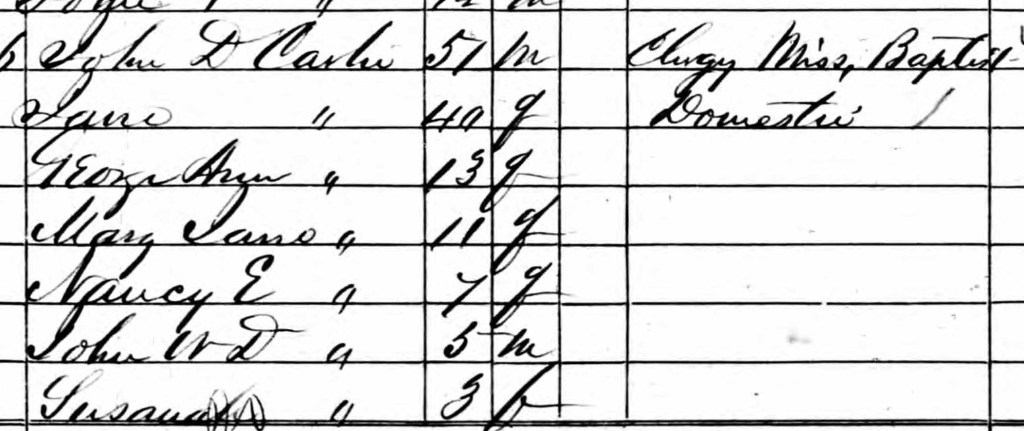 John D Carlin 51 m Clergy Miss, Baptist
Jane " 40 f Domestic
George Ann " 13 f
Mary Jane " 11 f
Nancy E " 7 f
John W D " 5 m
Susana " 3 f